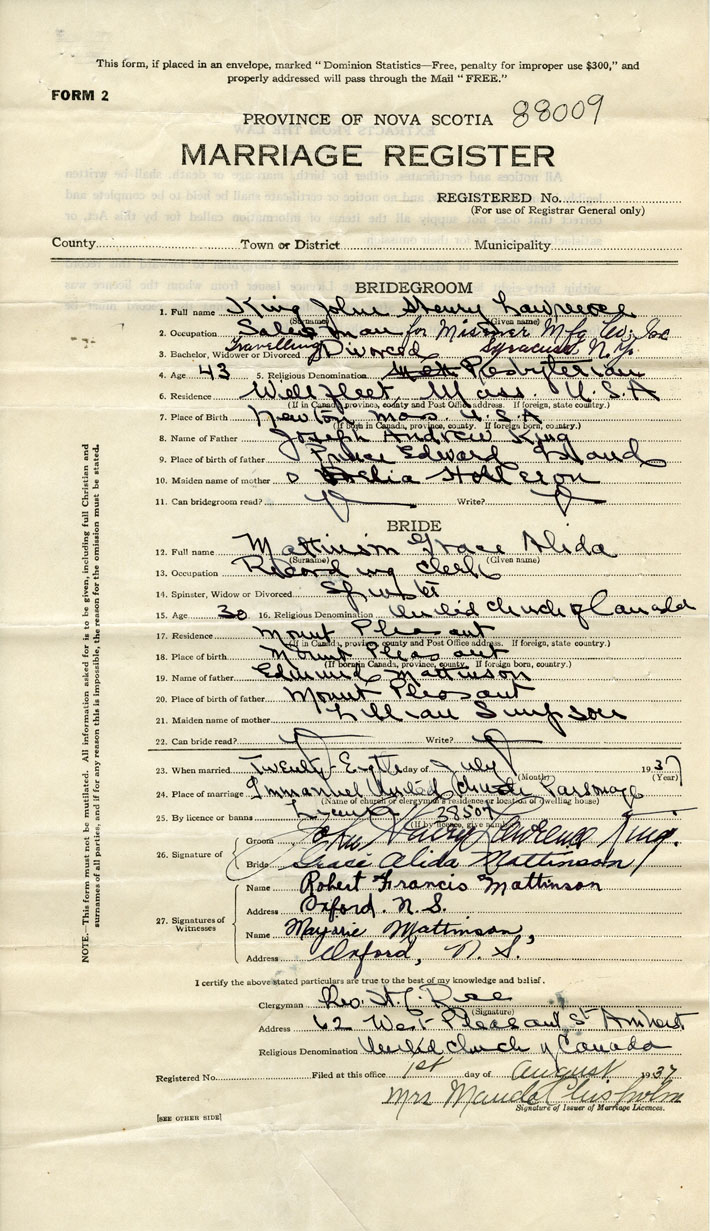 This form, if placed in an envelope, marked "Dominion Statistics—Free, penalty for improper use $300," and
properly addressed will pass through the Mail "FREE."
FORM 2
PROVINCE OF NOVA SCOTIA 88009
MARRIAGE REGISTER
REGISTERED No.
(For use of Registrar General only)
County Town or District Municipality
BRIDEGROOM
1. Full name King John Henry Lawrence
(Surname) (Given name)
2. Occupation Salesman for Mfg Co. Inc
Travelling Syracuse, N.Y.
3. Bachelor, Widower or Divorced Divorced
4. Age 43 5. Religious Denomination Presbyterian
6. Residence Wellfleet, Mass. U.S.A
(If in Canada, province, county and Post Office address. If foreign, state country.)
7. Place of Birth Newton Mass. U.S.A
(If born in Canada, province, county. If foreign born, country.)
8. Name of Father Joseph Andrew King
9. Place of birth of father Prince Edward Island
10. Maiden name of mother
11. Can bridegroom read? Write?
BRIDE
12. Full name Mattinson Grace Alida
(Surname) (Given name)
13. Occupation Recording Clerk
14. Spinster, Widow or Divorced Spinster
15. Age 30 16. Religious Denomination United Church of Canada
17. Residence Mount Pleasant
(If in Canada, province, county and Post Office address. If foreign, state country.)
18. Place of birth Mount Pleasant
(If born in Canada, province, county. If foreign born, country.)
19. Name of father Edmund Mattinson
20. Place of birth of father Mount Pleasant
21. Maiden name of mother Lillian Simpson
22. Can bride read? Write?
23. When married Twenty-Eigth day of July 1937
(Month) (Year)
24. Place of marriage Immanuel United Church Parsonage
(Name of church or clergyman's residence or location of dwelling house)
25. By licence or banns 38507
(If by licence, give number)
26. Signature of
Groom John Henry Lawrence King.
Bride Grace Alida Mattinson
27. Signatures of Witnesses
Name Robert Francis Mattinson
Address Oxford. N.S.
Name Mattinson,
Address Oxford, N.S.
I certify the above stated particulars are true to the best of my knowledge and belief.
Clergyman Rev. Rice
(Signature)
Address 62 West Pleasant St Amherst
Religious Denomination United Church of Canada
Registered No. Filed at this office 1st day of August 1937
Mrs Maude Chisholm
Signature of Issuer of Marriage Licences.
[SEE OTHER SIDE]
NOTE.—This form must not be mutilated. All information asked for is to be given, including full Christian and
surnames of all parties, and if for any reason this is impossible, the reason for the omission must be stated.